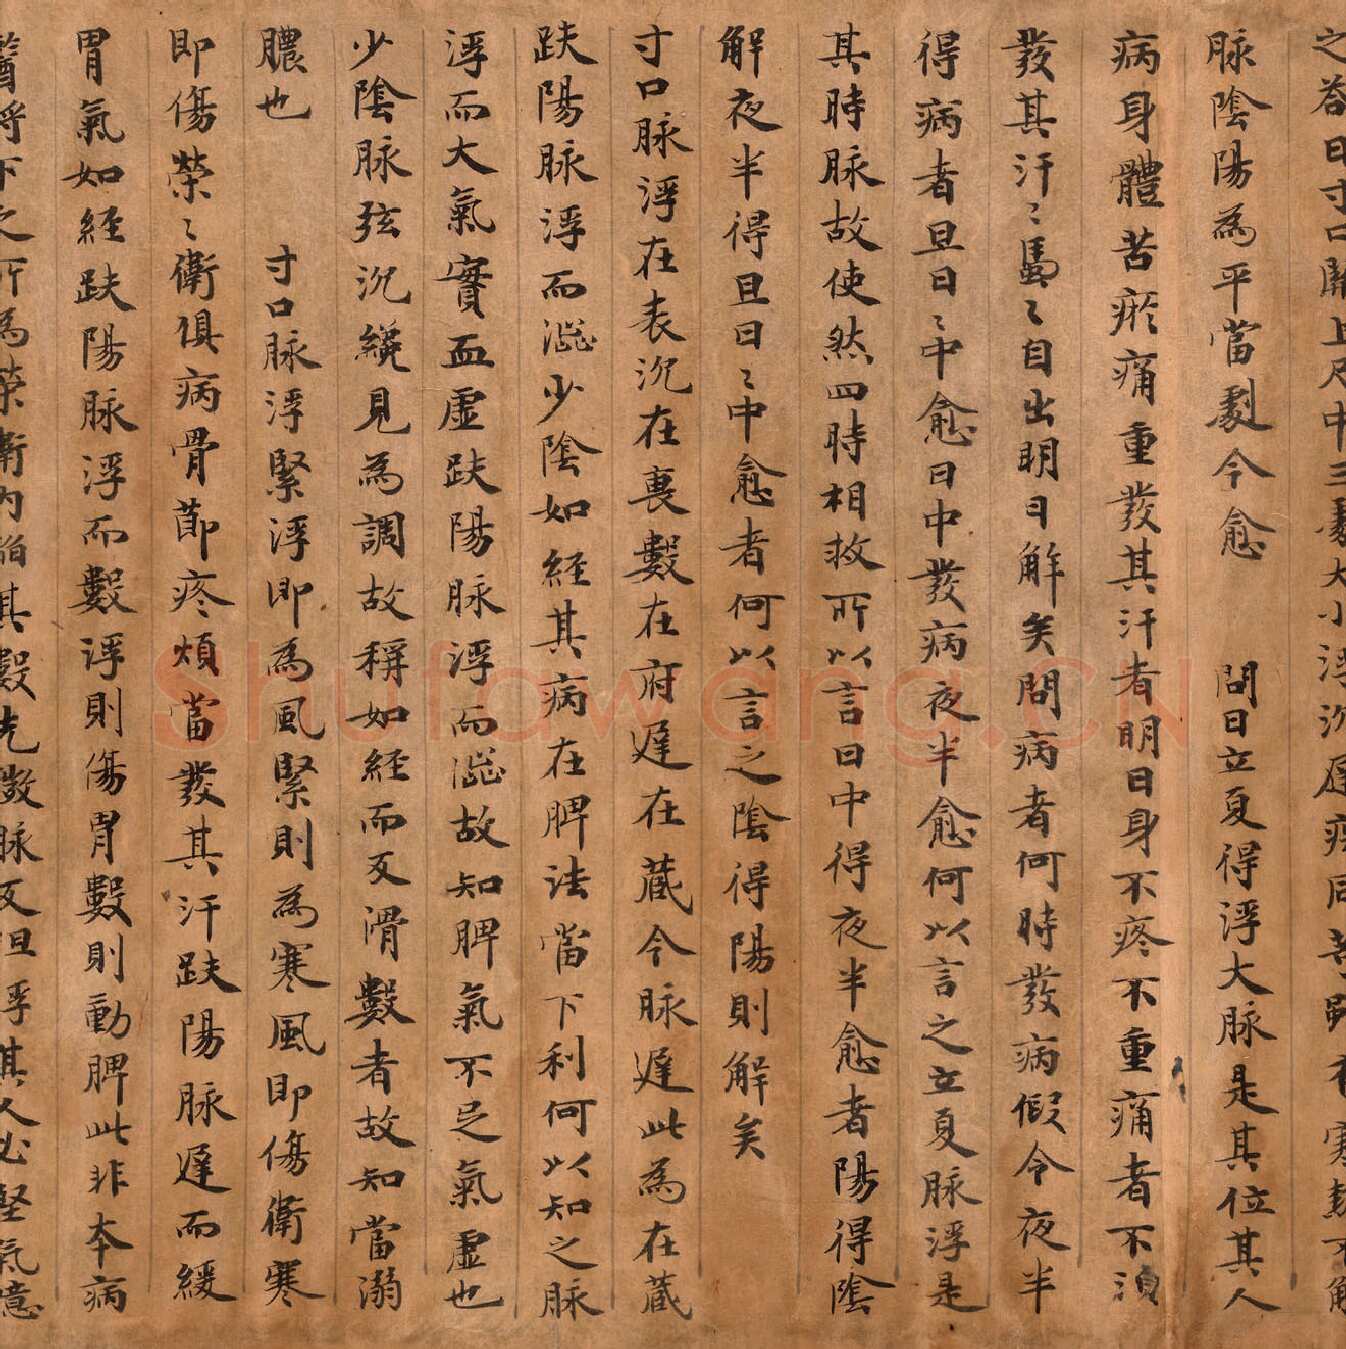 之答曰寸口關上尺中三處大小浮沉遲疾同等雖有寒熱不解
脉陰陽為平當劇今愈　問曰立夏得浮大脉是其位其人
病身體苦瘀痛重發其汗者明日身不疼不重痛者不須
發其汗〻濈〻自出明日解矣問病者何時發病假令夜半
得病者旦日〻中愈日中發病夜半愈何以言之立夏脉浮是
其時脉故使然四時相救所以言日中得夜半愈者陽得陰
解夜半得旦日〻中愈者何以言之陰得陽則解矣
寸口脉浮在表沉在裏數在府遲在蔵今脉遲此為在蔵
趺陽脉浮而澁少陰如經其病在脾法當下利何以知之脉
浮而大氣實血虛趺陽脉浮而澁故知脾氣不足氣虛也
少陰脉弦沉纔見為調故稱如經而反滑數者故知當溺
膿也　寸口脉浮緊浮即為風緊則為寒風即傷衛寒
即傷榮〻衛俱病骨節疼煩當發其汗趺陽脉遲而緩
胃氣如經趺陽脉浮而數浮則傷胃數則動脾此非本病
醫將下之所為榮衛內陷其數先微脉反但浮其人必堅氣噫